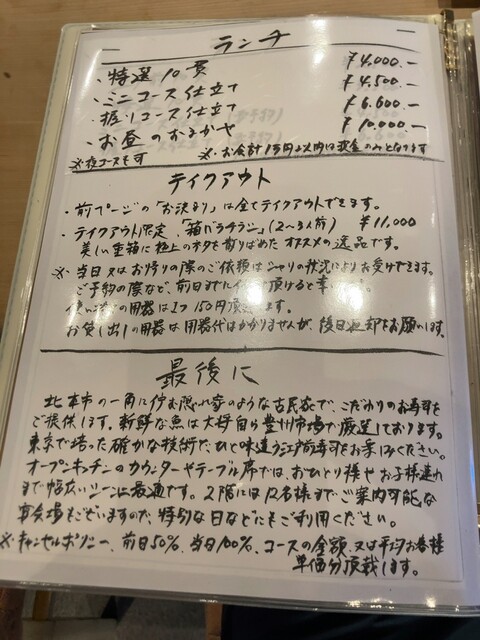 ランチ
・特選10貫 ¥4,000.-
・ミニコース仕立て ¥4,500.-
・握りコース仕立て ¥6,600.-
・お昼のおまかせ ¥10,000.-
※夜コースも可 ※お会計1万円以内は現金のみとなります
テイクアウト
・前ページの「お決まり」は全てテイクアウトできます。
・テイクアウト限定、「箱バラチラシ」(2〜3人前) ¥11,000
美しい重箱に極上のネタを散りばめたオススメの逸品です。
※当日又はお帰りの際のご依頼はシャリの状況によりお受けできます。
ご予約の際など、前日までに頂けると幸
の用器は1つ150円頂きます。
お貸し出しの用器は用器代はかかりませんが、後日返却をお願います。
最後に
北本市の一角に佇む隠れ家のような古民家で、こだわりのお寿司を
ご提供します。新鮮な魚は大将自ら豊洲市場で厳選しております。
東京で培った確かな技術で、ひと味違う江戸前寿司をお楽しみください。
オープンキッチンのカウンターやテーブル席では、おひとり様やお子様連れ
まで幅広いシーンに最適です。2階には12名様までご案内可能な
宴会場もございますので、特別な日などにもご利用ください。
※キャンセルポリシー、前日50%、当日100%、コースの金額、又は平均お客様
単価分頂戴します。